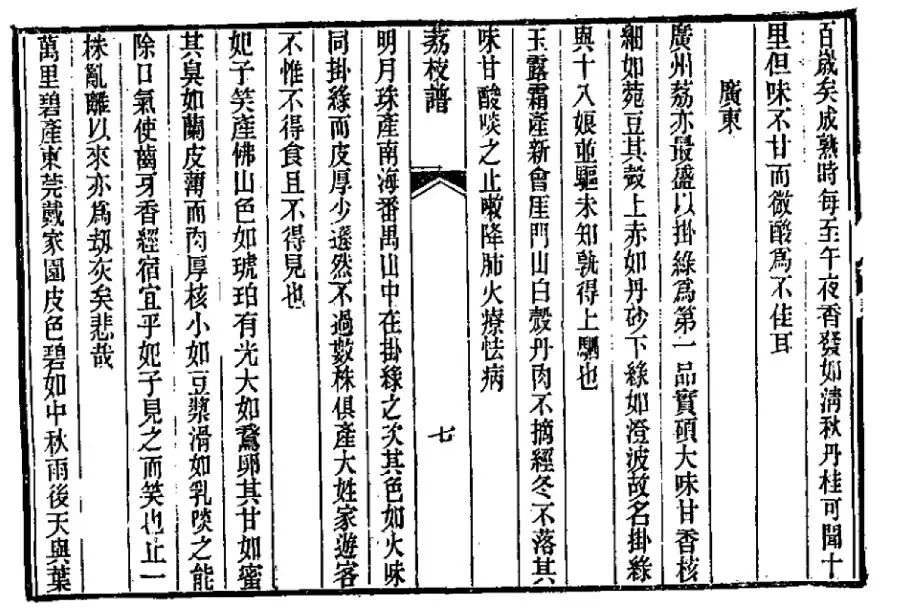 百歲矣成熟時每至午夜香發如淸秋丹桂可聞十
里但味不甘而微酸爲不佳耳
廣東
廣州荔亦最盛以掛綠爲第一品實碩大味甘香核
細如菀豆其殼上赤如丹砂下綠如澄波故名掛綠
與十八娘並驅未知孰得上駟也
玉露霜產新會厓門山白殼丹肉不摘經冬不落其
味甘酸啖之止嗽降肺火療怯病
荔枝譜
七
明月珠產南海番禺山中在掛綠之次其色如火味
同掛綠而皮厚少遜然不過數株俱產大姓家遊客
不惟不得食且不得見也
妃子笑產佛山色如琥珀有光大如鵞卵其甘如蜜
其臭如蘭皮薄而肉厚核小如豆漿滑如乳啖之能
除口氣使齒牙香經宿宜乎妃子見之而笑也止一
株亂離以來亦爲劫灰矣悲哉
萬里碧產東莞戴家園皮色碧如中秋雨後天與葉